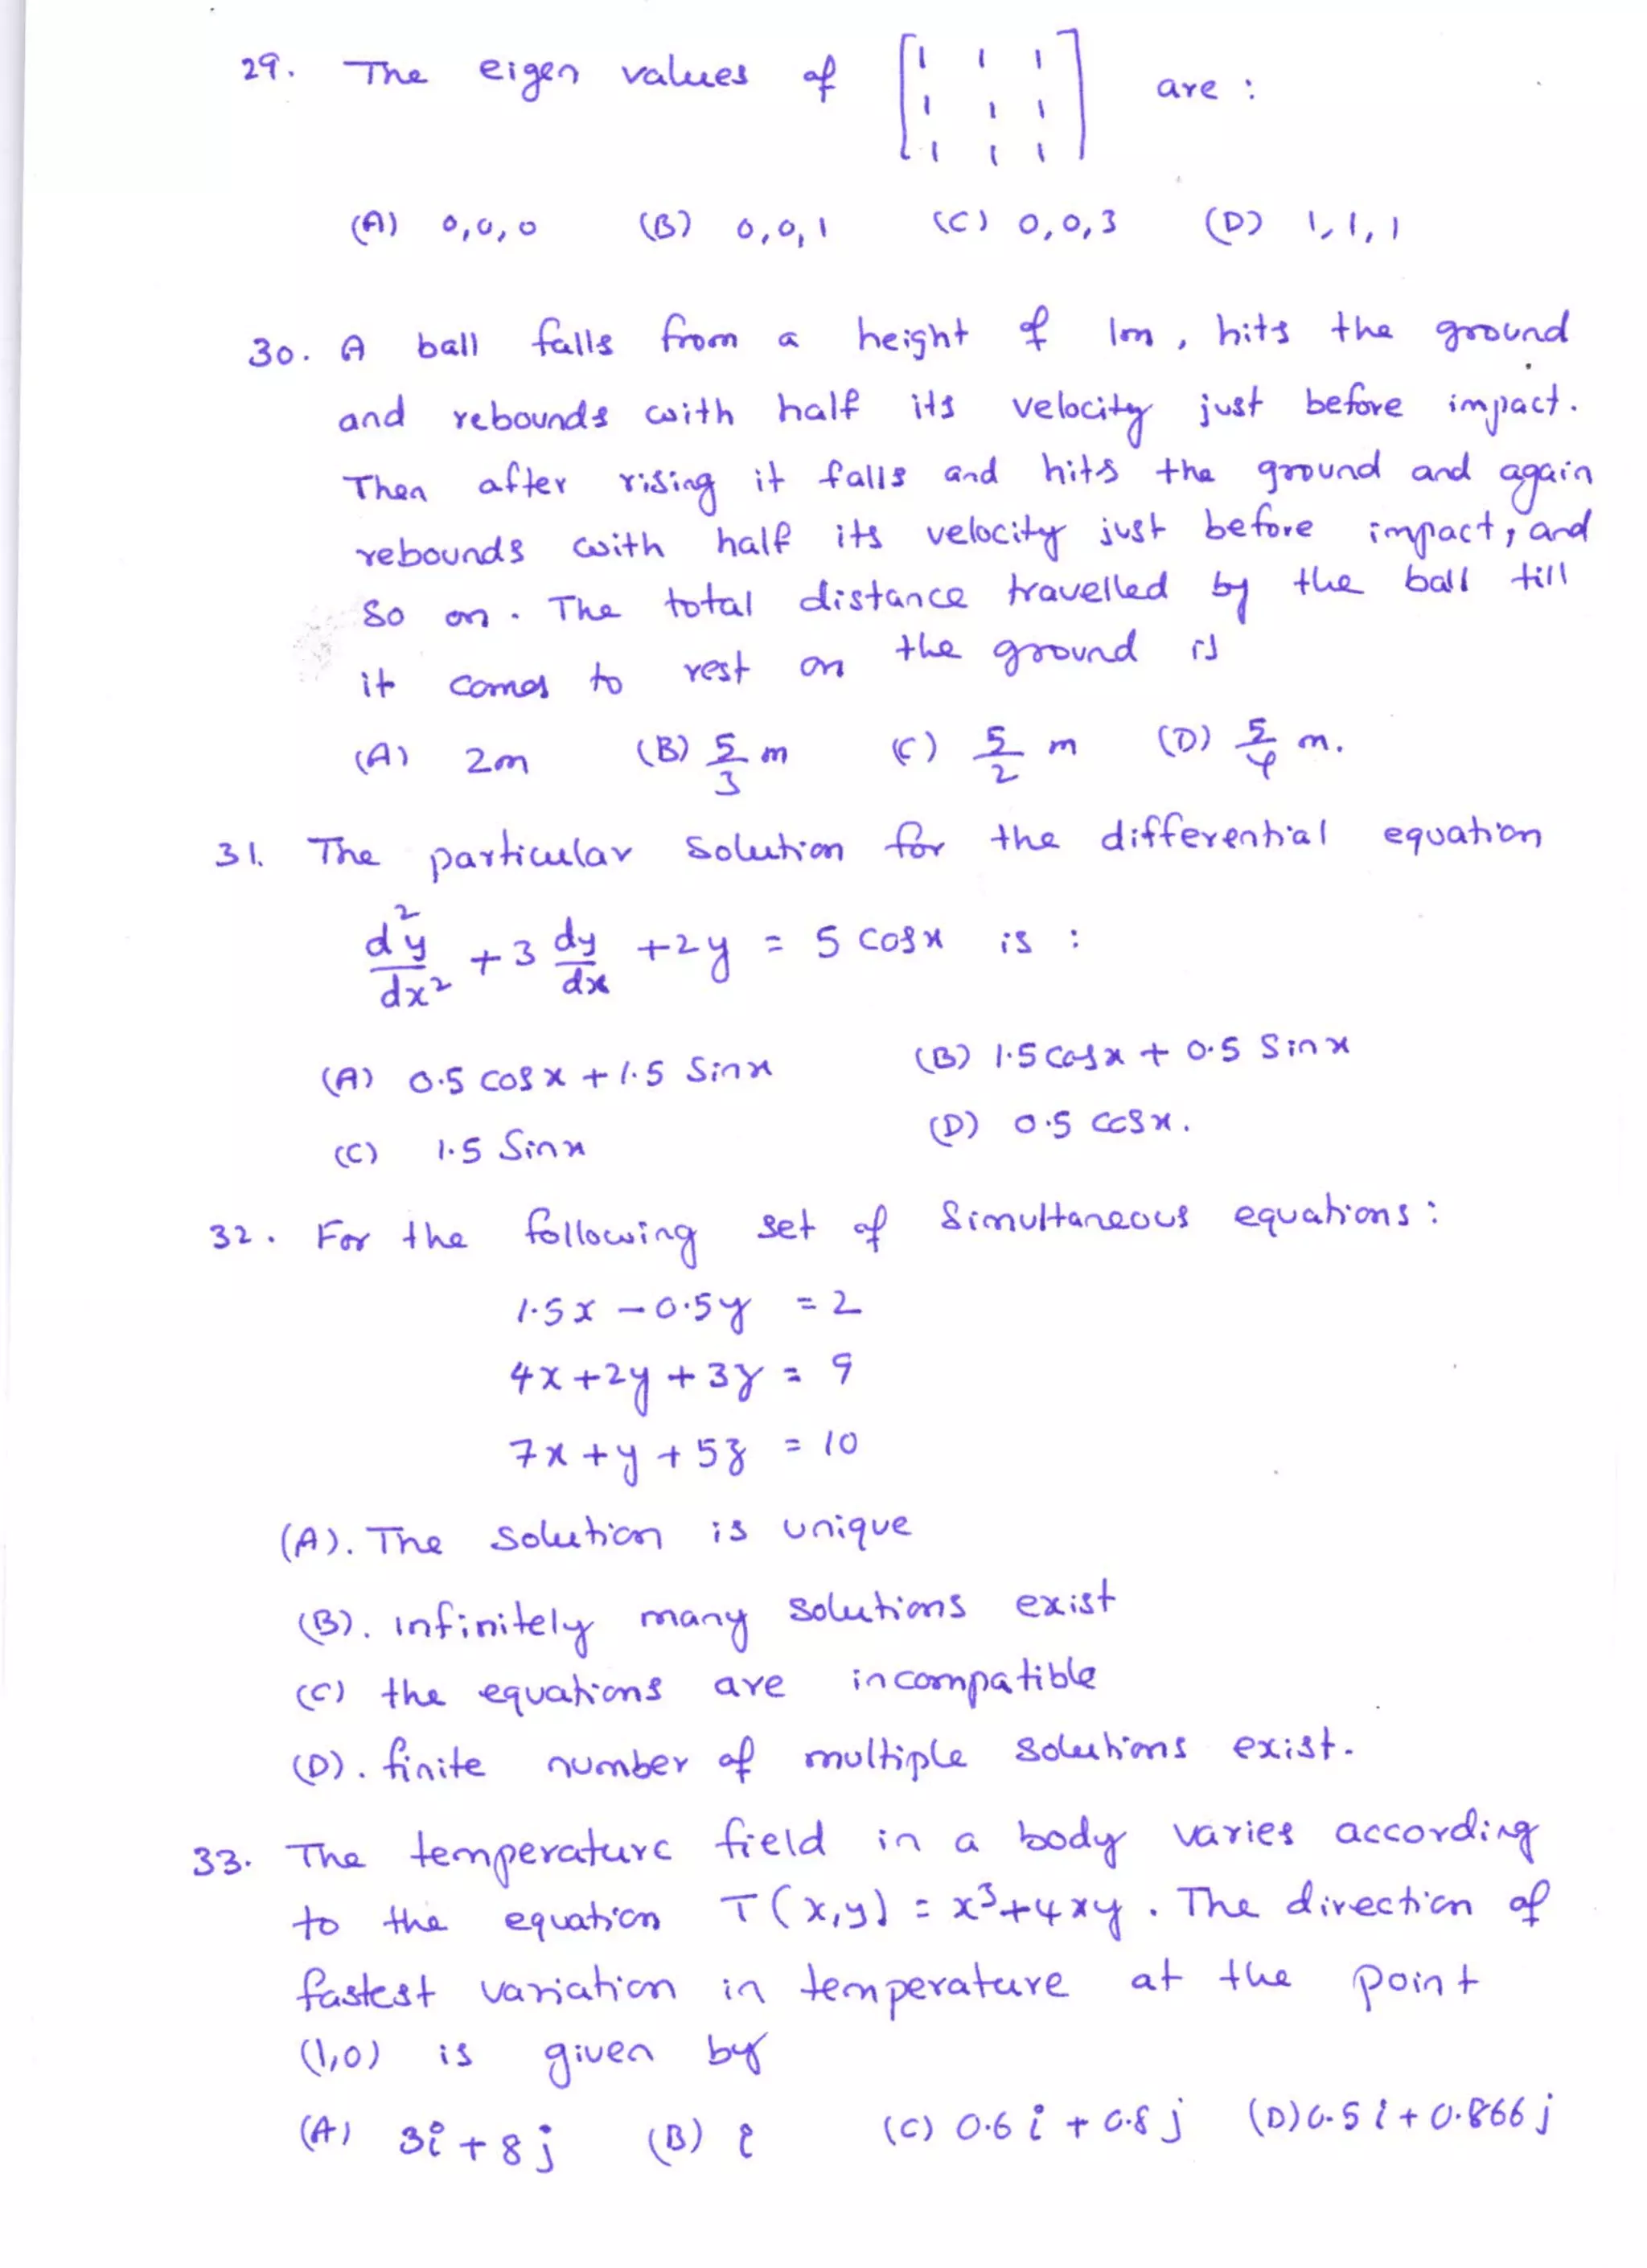 29. The eigen values of [1 1 1
1 1 1
1 1 1] are :
(A) 0,0,0 (B) 0,0,1 (C) 0,0,3 (D) 1,1,1
30. A ball falls from a height of 1m, hits the ground
and rebounds with half its velocity just before impact.
Then after rising it falls and hits the ground and again
rebounds with half its velocity just before impact, and
so on. The total distance travelled by the ball till
it comes to rest on the ground is
(A) 2m (B) 5/3 m (C) 5/2 m (D) 5/4 m.
31. The particular solution for the differential equation
d²y/dx² + 3 dy/dx + 2y = 5 cosx is :
(A) 0.5 cosx + 1.5 Sinx (B) 1.5 Cosx + 0.5 Sinx
(C) 1.5 Sinx (D) 0.5 cosx.
32. For the following set of Simultaneous equations:
1.5x - 0.5y = 2
4x + 2y + 3z = 9
7x + y + 5z = 10
(A). The solution is unique
(B). infinitely many solutions exist
(C) the equations are incompatible
(D). finite number of multiple solutions exist.
33. The temperature field in a body varies according
to the equation T(x,y) = x³+4xy. The direction of
fastest variation in temperature at the point
(1,0) is given by
(A) 3i + 8j (B) i (C) 0.6 i + 0.8 j (D) 0.5 i + 0.866 j